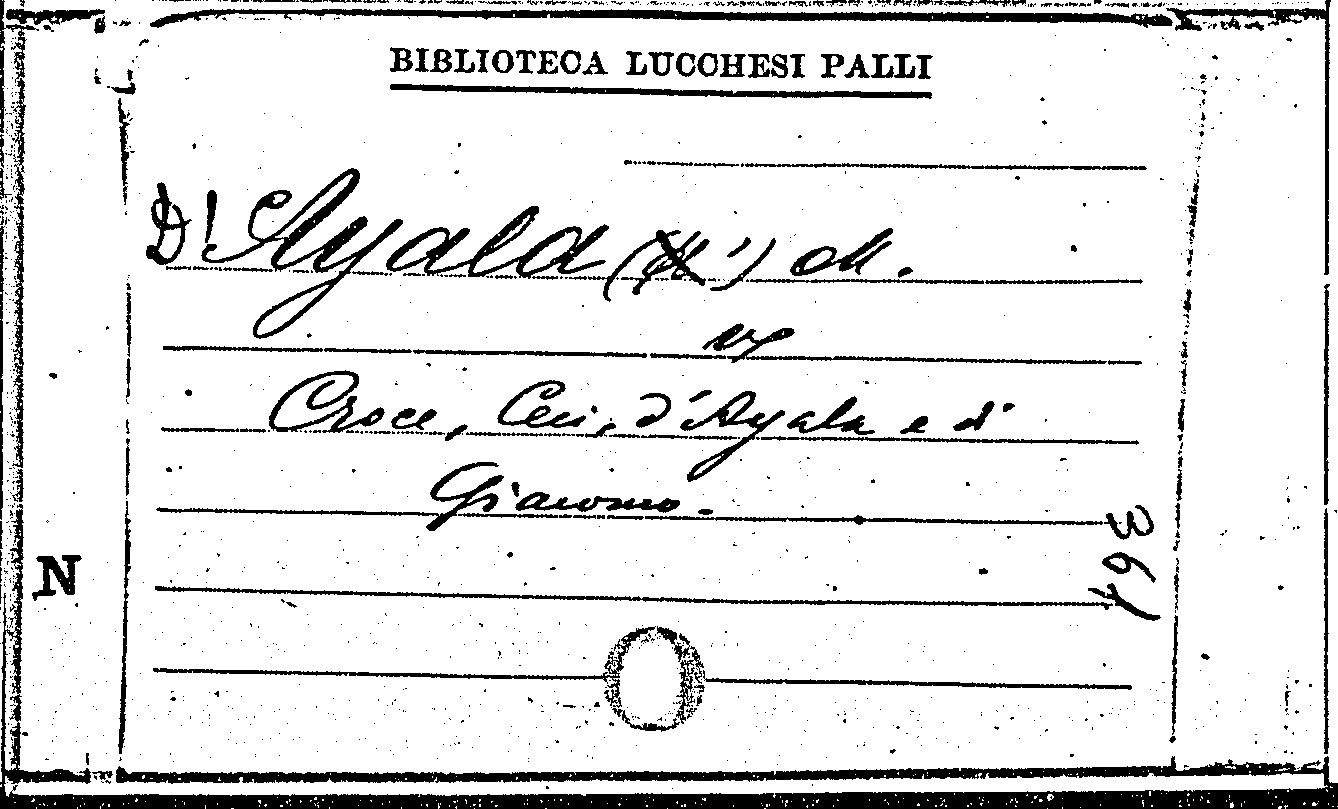 BIBLIOTECA LUCCHESI PALLI
D'Ayala (d') M.
Croce, Ceci, d'Ayala e di
Giacomo.
N
364